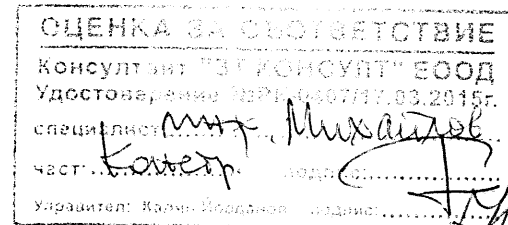 ОЦЕНКА ЗА СЪОТВЕТСТВИЕ
Консултант КОНСУЛТ" ЕООД
Удостоверение 17.03.2015г.
специалист: инж. Михайлов
част: Констр подпис:
Управител: Калин Йорданов подпис: